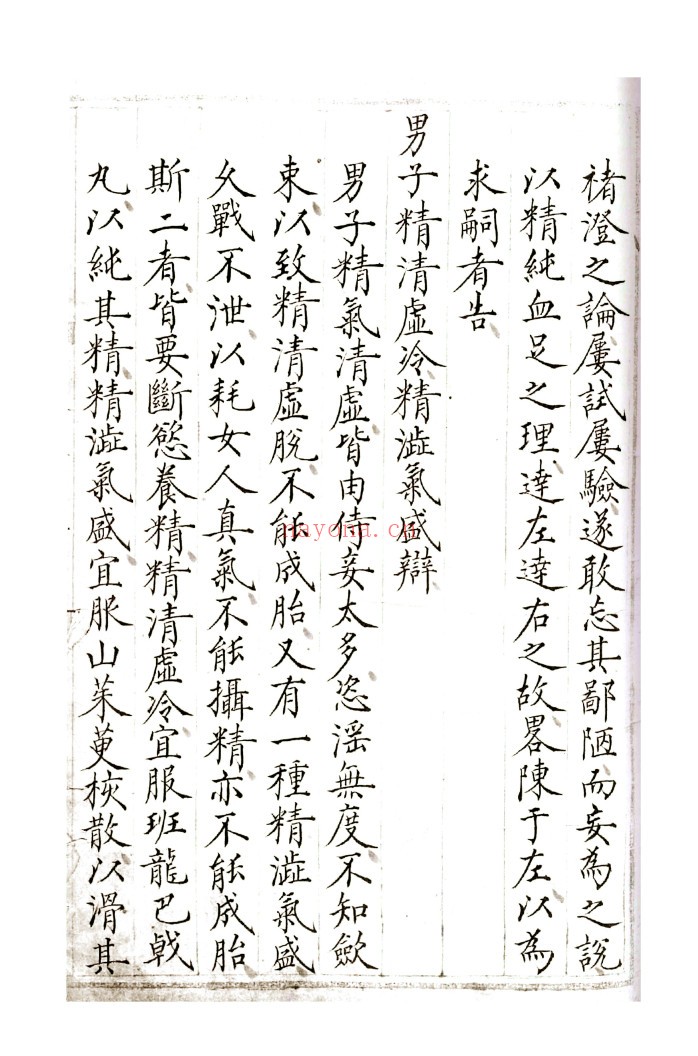 褚澄之論屢試屢驗遂敢忘其鄙陋而妄為之說
以精純血足之理達左達右之故畧陳于左以為
求嗣者告
男子精清虛冷精澁氣盛辯
男子精氣清虛皆由侍妾太多恣淫無度不知歛
束以致精清虛脫不能成胎又有一種精澁氣盛
久戰不泄以耗女人真氣不能攝精亦不能成胎
斯二者皆要斷慾養精精清虛冷宜服班龍巴戟
丸以純其精精澁氣盛宜服山茱萸核散以滑其
nayona.cn